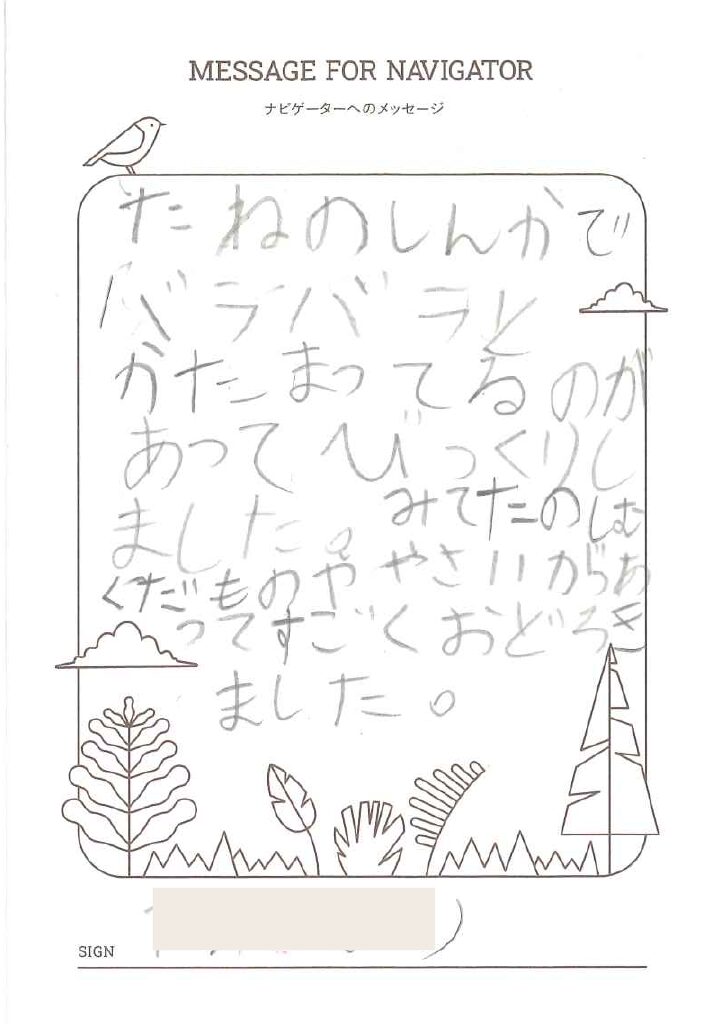 MESSAGE FOR NAVIGATOR
ナビゲーターへのメッセージ
たねのしんかで
バラバラと
かたまってるのが
あってびっくりし
ました。みてたのしむ
くだものややさいからあ
ってすごくおどろき
ました。
SIGN